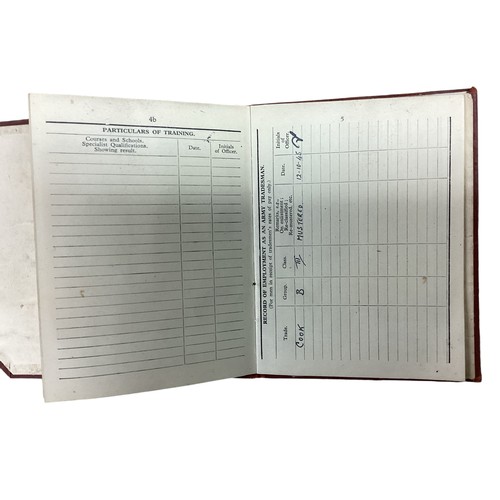 4b
PARTICULARS OF TRAINING.
Courses and Schools.
Specialist Qualifications.
Showing result.
Date.
Initials
of Officer.
5
RECORD OF EMPLOYMENT AS AN ARMY TRADESMAN.
(For men in receipt of tradesmen's rates of pay only.)
Trade.
Group.
Class.
Remarks, e.g.:
On enlistment;
Re-classified;
Re-mustered, etc.
Date.
Initials
of
Officer.
COOK B III MUSTERED 12-10-45